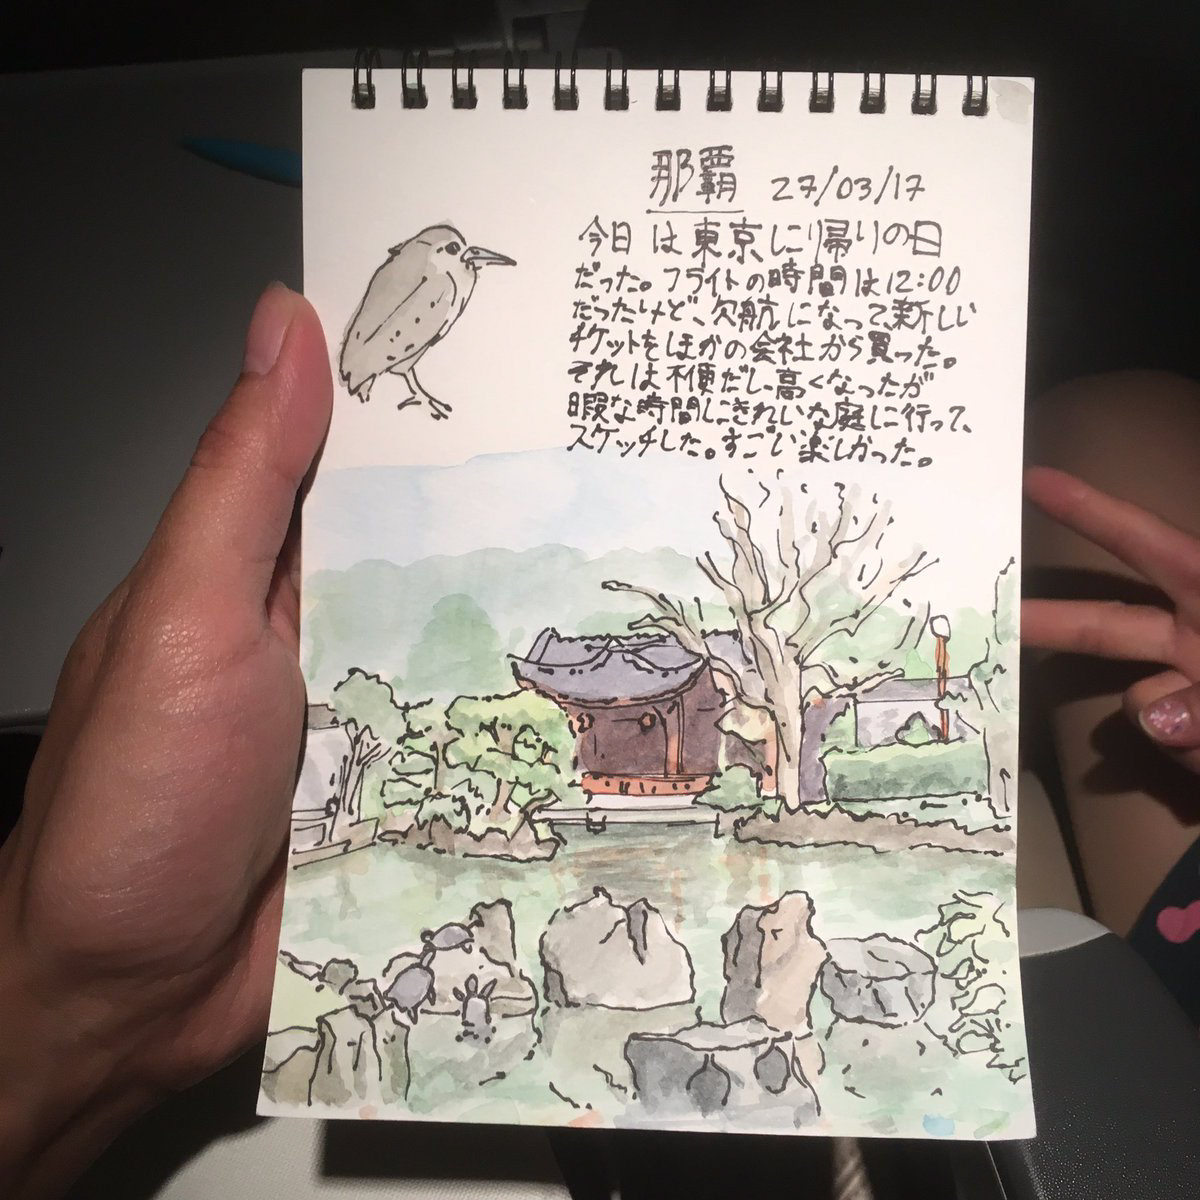 那覇 27/03/17
今日は東京に帰りの日
だった。フライトの時間は12:00
だったけど、欠航になって、新しい
チケットをほかの会社から買った。
それは不便だし、高くなったが
暇な時間にきれいな庭に行って、
スケッチした。すごい楽しかった。